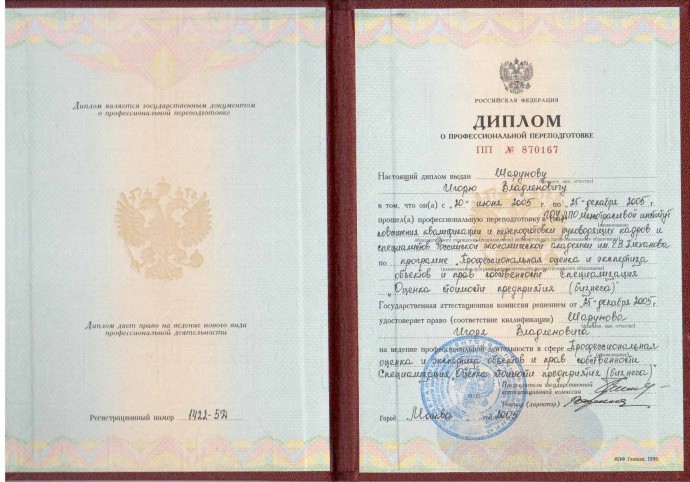 Диплом является государственным документом
о профессиональной переподготовке
Диплом дает право на ведение нового вида
профессиональной деятельности
Регистрационный номер 1422-5Д
РОССИЙСКАЯ ФЕДЕРАЦИЯ
ДИПЛОМ
О ПРОФЕССИОНАЛЬНОЙ ПЕРЕПОДГОТОВКЕ
ПП № 870167
Настоящий диплом выдан Шарунову
Игорю Владленовичу
в том, что он(а) с „20" июня 2005 г. по „25" декабря 2005г.
прошел(а) профессиональную переподготовку в (на) ГОУ ДПО Межотраслевой институт
повышения квалификации и переподготовки руководящих кадров и
специалистов Российской экономической академии им. Г.В. Плеханова
по программе „Профессиональная оценка и экспертиза
объектов и прав собственности" Специализация
„Оценка стоимости предприятия (бизнеса)"
Государственная аттестационная комиссия решением от „25" декабря 2005г.
удостоверяет право (соответствие квалификации) Шарунова
Игоря Владленовича
на ведение профессиональной деятельности в сфере „Профессиональная
оценка и экспертиза объектов и прав собственности
Специализация „Оценка стоимости предприятия (бизнеса)"
Председатель государственной
аттестационной комиссии
Ректор (директор)
Город Москва год 2005